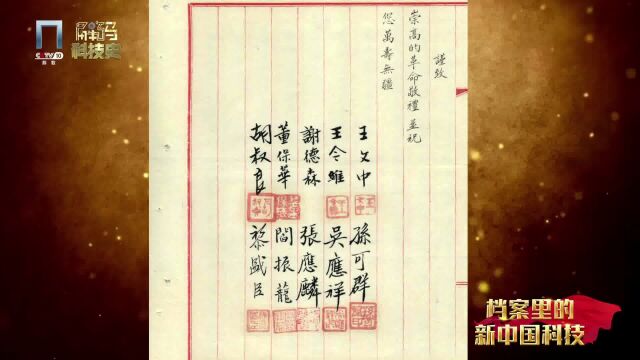 CCTV 10
科教
解码
科技史
謹致
崇高的革命敬禮並祝
您萬壽無疆
王文中 孫可群
王令維 吳應祥
謝德森 張應麟
董保華 閻振龍
胡叔良 黎盛臣
档案里的
新中国科技